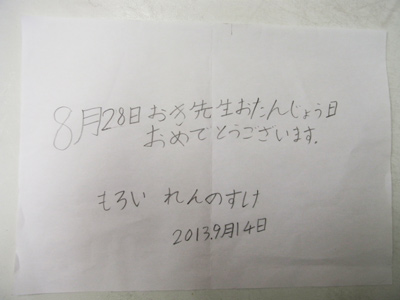 8月28日おぎ先生おたんじょう日
おめでとうございます.
もろい れんのすけ
2013.9月14日